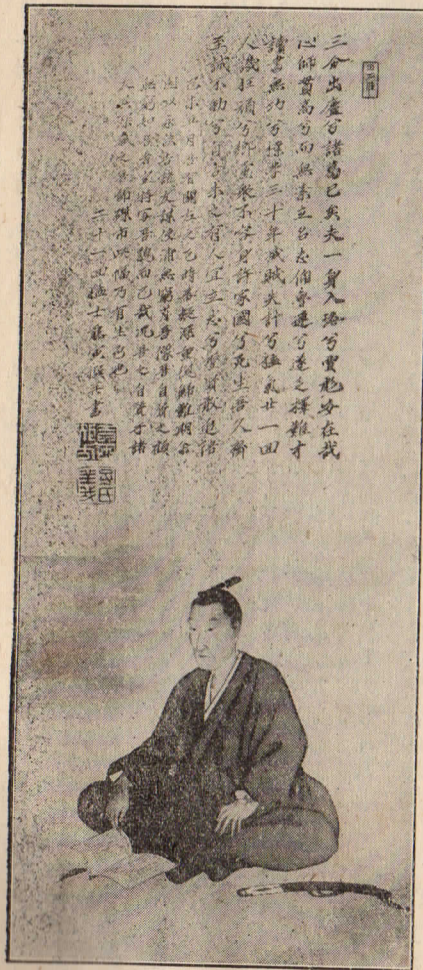 三分出廬兮諸葛已矣夫一身入洛兮賈彪安在哉
心師貫高兮而無素立名志仰魯連兮遂乏釋難才
讀書無功兮樸學三十年滅賊失計兮猛氣廿一回
人譏狂頑兮鄉黨衆不容身許家國兮死生吾久齊
至誠不動兮自古未之有人宜立志兮聖賢敢追陪
己未五月吾有關左之厄時幕疑深重復歸難期余
因以永訣告諸友謀使浦無窮肖吾像吾自贊之顧
無窮知吾者豈特寫吾貌而已哉況吾之自贊乎諸
友其深藏之吾即磔市此幅乃有生色也
二十一回猛士藤寅撰并書